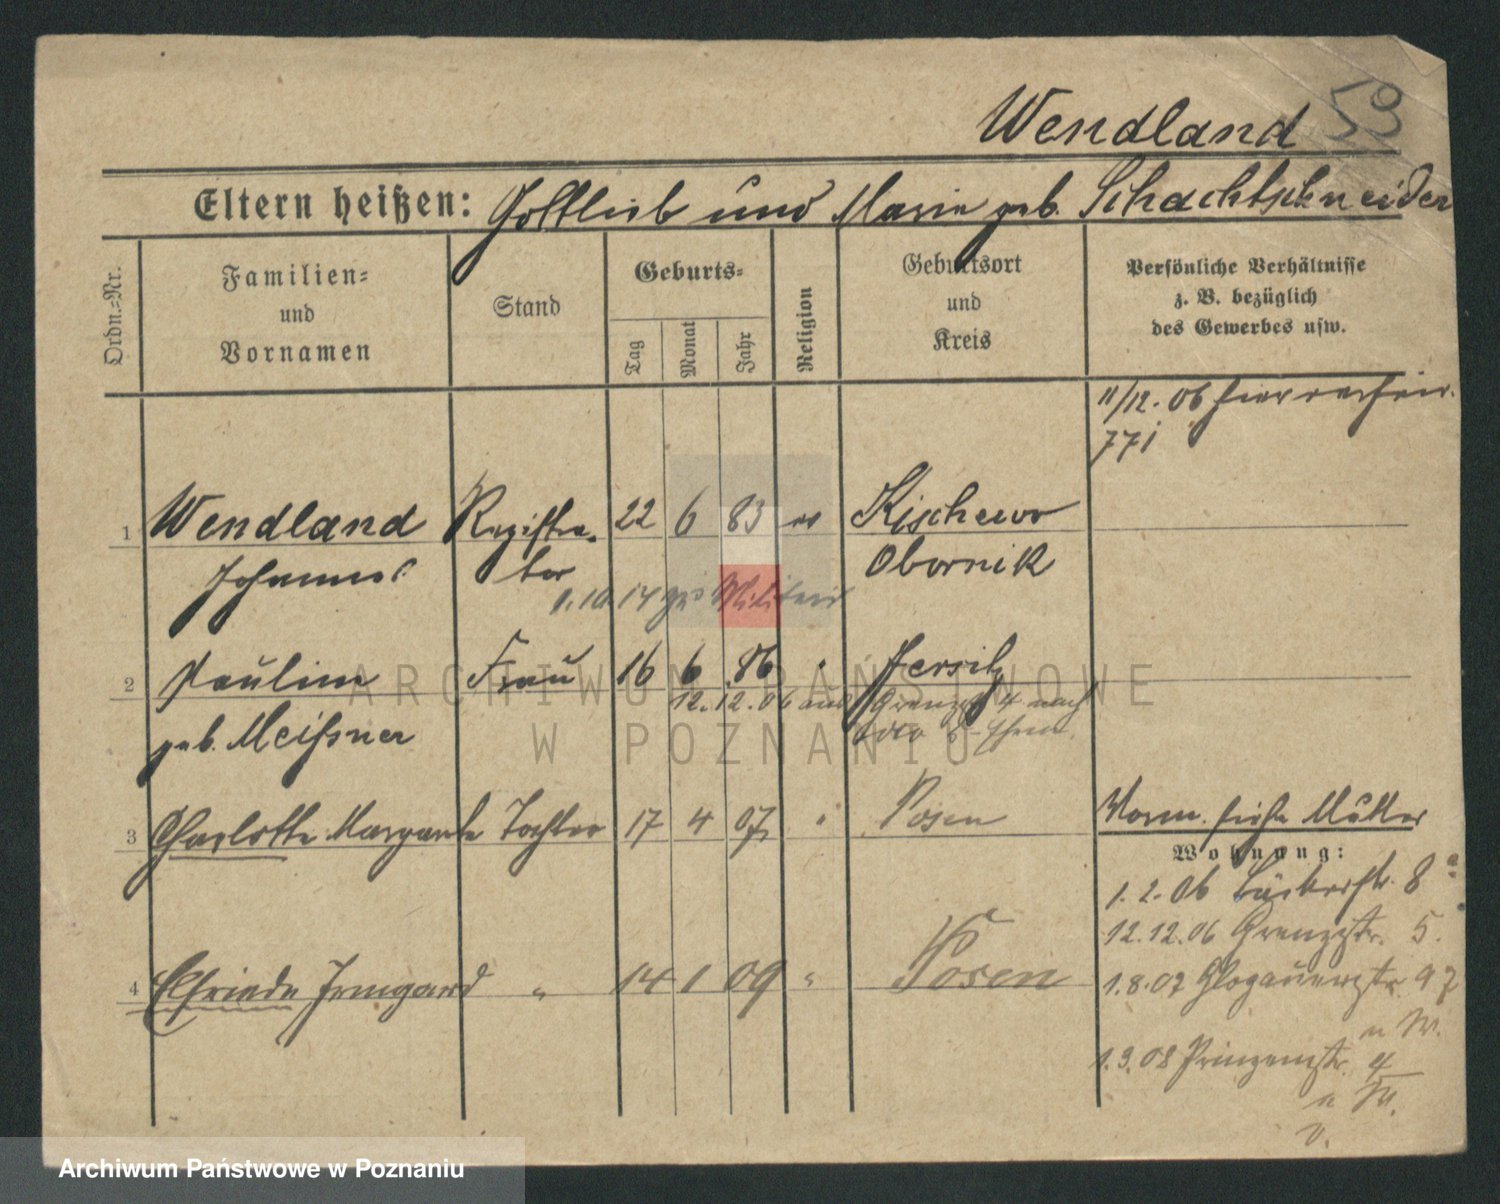 Wendland 59
Eltern heißen: Gottlieb und Marie geb. Schachtschneider
Ordn.=Nr.
Familien=
und
Vornamen
Stand
Geburts=
Tag
Monat
Jahr
Religion
Geburtsort
und
Kreis
Persönliche Verhältnisse
z. B. bezüglich
des Gewerbes usw.
11/12. 06 hier
771
1 Wendland Registra- 22 6 83 ev Kischewo
Johannes tor Obornik
1.10.14 zum Militär
2 Pauline Frau 16 6 86 " Jersitz
12.12.06 aus Grenzstr 4 nach
geb. Meißner
3 Charlotte Margarete Tochter 17 4 07 " Posen
Vorm. siehe Mutter
Wohnung:
1.2.06 Bäckerstr. 8
12.12.06 Grenzstr. 5.
4 Elfriede Irmgard " 14 1 09 " Posen
1.8.07 Glogauerstr. 97
n W.
1.3.08 Prinzenstr. 4
n W.
v.
ARCHIWUM PAŃSTWOWE
W POZNANIU
Archiwum Państwowe w Poznaniu